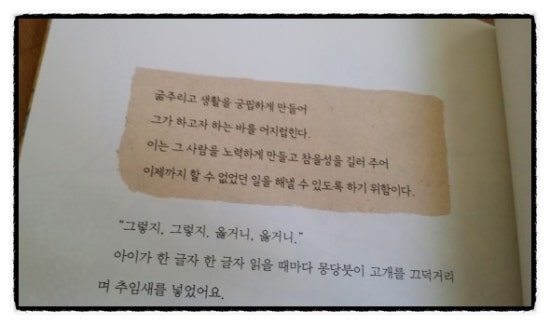 굶주리고 생활을 궁핍하게 만들어
그가 하고자 하는 바를 어지럽힌다.
이는 그 사람을 노력하게 만들고 참을성을 길러 주어
이제까지 할 수 없었던 일을 해낼 수 있도록 하기 위함이다.
“그렇지, 그렇지. 옳거니, 옳거니.”
아이가 한 글자 한 글자 읽을 때마다 몽당붓이 고개를 끄덕거리
며 추임새를 넣었어요.